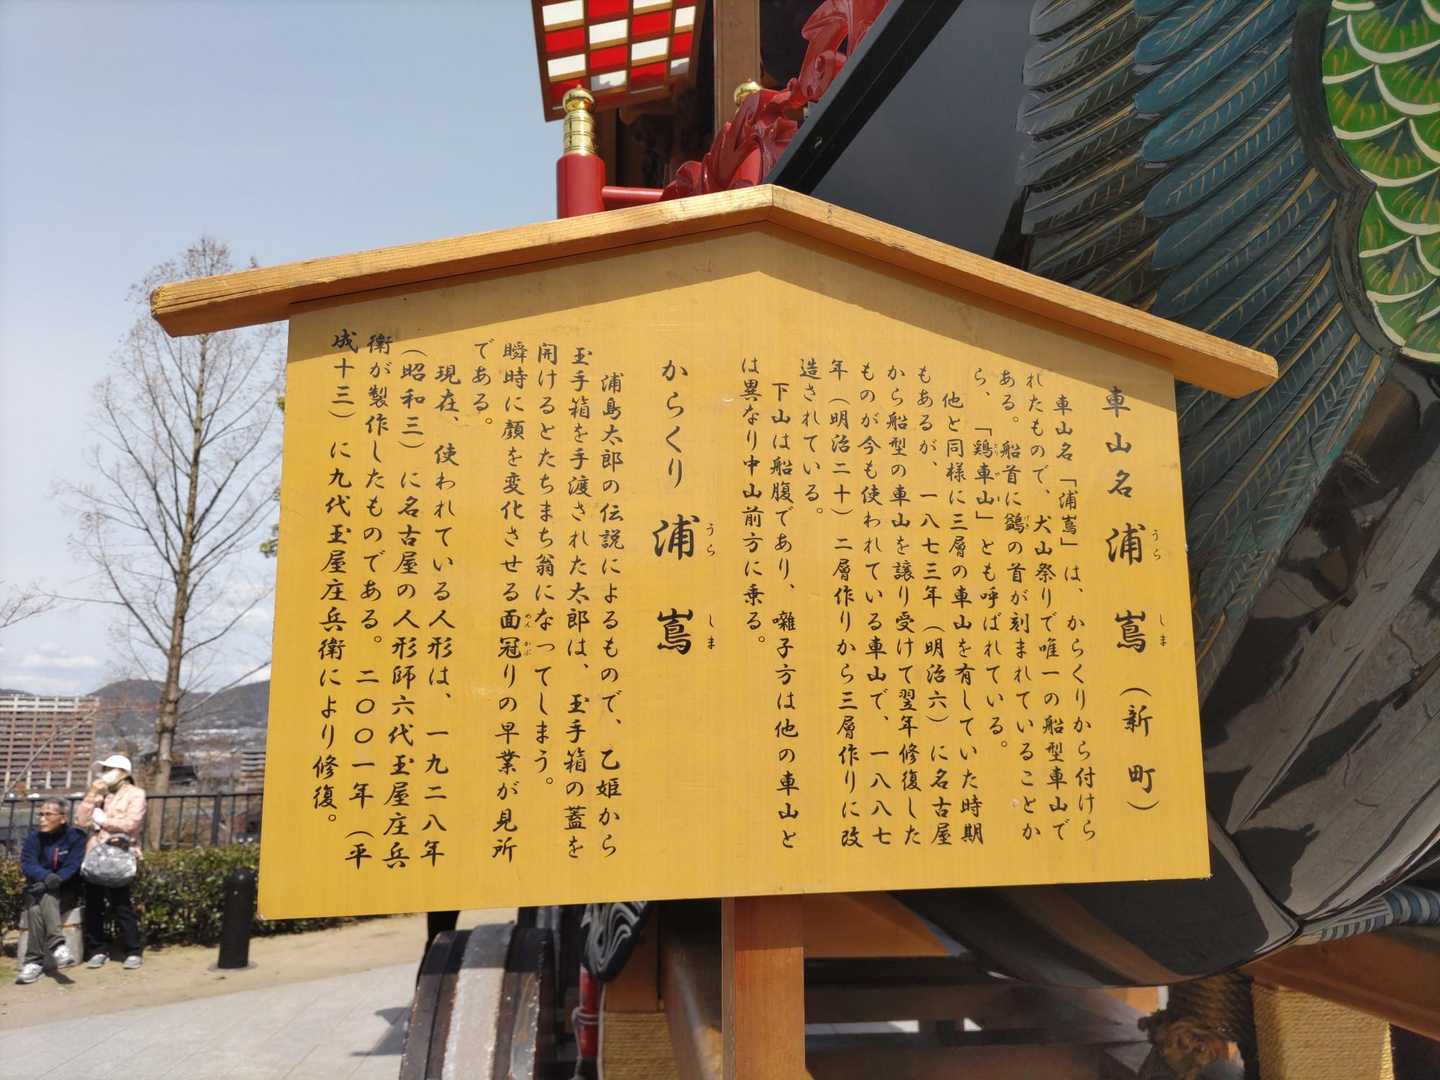 車山名 浦嶌（新町）
うら しま
車山名「浦嶌」は、からくりから付けら
れたもので、犬山祭りで唯一の船型車山で
ある。船首に鷁の首が刻まれていることか
ら、「鶏車山」とも呼ばれている。
他と同様に三層の車山を有していた時期
もあるが、一八七三年（明治六）に名古屋
から船型の車山を譲り受けて翌年修復した
ものが今も使われている車山で、一八八七
年（明治二十）二層作りから三層作りに改
造されている。
下山は船腹であり、囃子方は他の車山と
は異なり中山前方に乗る。
からくり 浦嶌
うら しま
浦島太郎の伝説によるもので、乙姫から
玉手箱を手渡された太郎は、玉手箱の蓋を
開けるとたちまち翁になってしまう。
瞬時に顔を変化させる面冠りの早業が見所
めん かぶ
である。
現在、使われている人形は、一九二八年
（昭和三）に名古屋の人形師六代玉屋庄兵
衛が製作したものである。二〇〇一年（平
成十三）に九代玉屋庄兵衛により修復。